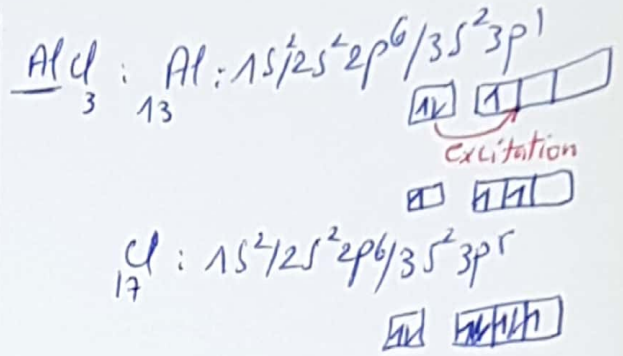 AlCl₃ : ₁₃Al : 1s²/2s²2p⁶/3s²3p¹
excitation
₁₇Cl : 1s²/2s²2p⁶/3s²3p⁵